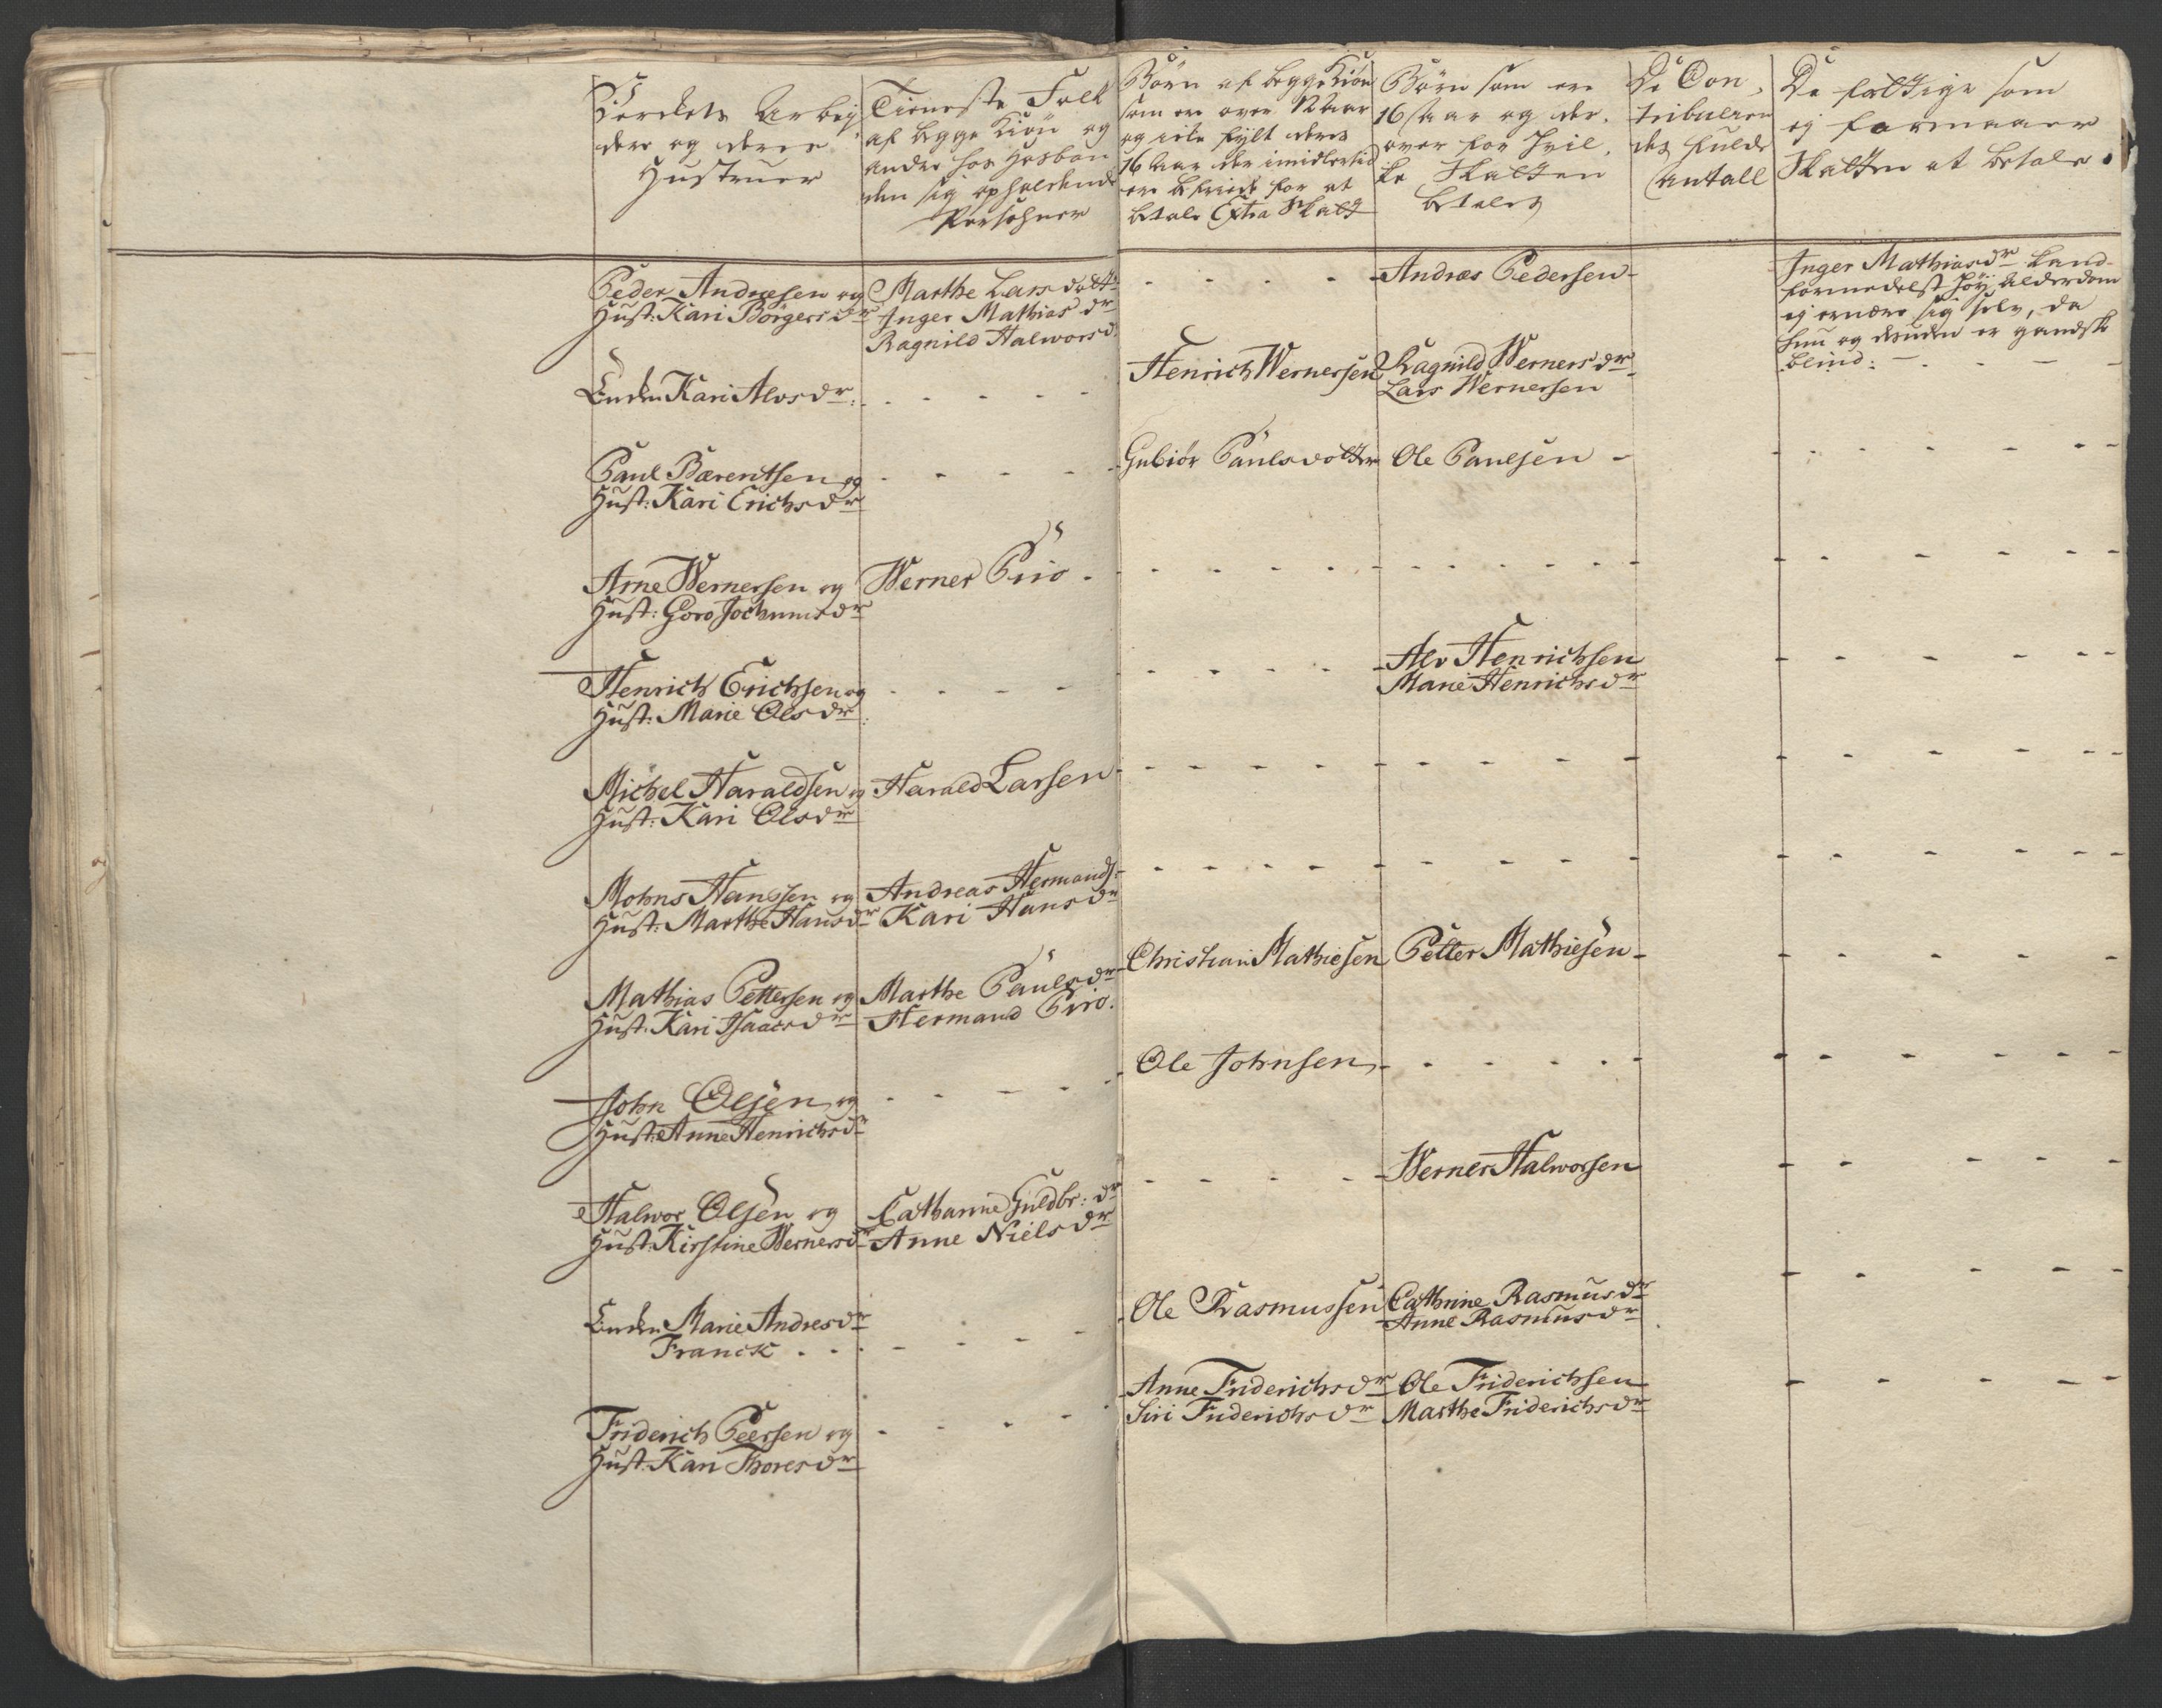 Verckets Arbej
dere og deres
Hustruer
Tieneste Folk
af begge Kiøn og
andre hos Hosbon
den sig opholdende
Persohner
Børn af begge Kiøn
som er over 12 Aar
og icke fylt deres
16 Aar der imidlertid
er befriet for at
betale Extra Skatt
Børn som ere
16 Aar og der,
over for hvil,
ke Skatten
betales
De Con,
tribueren
des fulde
Antall
De fattige som
ej formaaer
Skatten at betale.
Peder Andresen og
Hust: Kari Børgersdr
Marthe Larsdatt:
Inger Mathiasdr
Ragnild Halworsd.
Andreas Pedersen
Inger Mathiasdr kand
formedelst høy Alderdom
ej ernære sig selv, da
hun og desuden er gandske
blind:
Enken Kari Alvsdr:
Henrich Wernersen
Ragnild Wernersdr
Lars Wernersen
Paul Bærentsen og
Hust: Kari Erichsdr
Gubiør Paulsdatter
Ole Paulsen
Arne Wernersen og
Hust: Goro Jochumsdr
Werner Piio
Henrich Erichsen og
Hust: Marie Olsdr:
Alv Henrichsen
Marie Henrichsdr
Michel Haraldsen og
Hust: Kari Olsdr
Harald Larsen
Mohns Hansen og
Hust: Marthe Hansdr
Andreas Hermands:
Kari Hansdr
Mathias Pettersen og
Hust: Kari Isaacsdr
Marthe Paulsdr
Hermand Piio.
Christian Mathiesen
Petter Mathiesen
John Olsen og
Hust: Anne Henrichsd
Ole Johnsen
Halwor Olsen og
Hust: Kirstine Wernersd
Catharine Guldbr: dr
Anne Nielsdr
Werner Halworsen
Enken Marie Andresdr
Franck
Ole Rasmussen
Cathrine Rasmusdr
Anne Rasmusdr
Friderich Peersen og
Hust: Kari Thoresdr
Anne Friderichsdr
Siri Friderichsdr
Ole Friderichsen
Marthe Friderichsdr